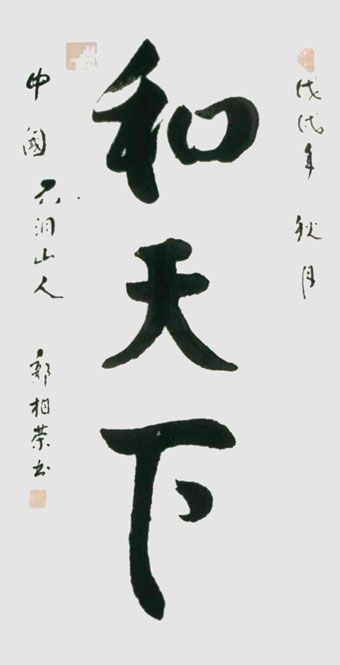 戊戌年 秋月
和天下
中國 六洞山人 郭相榮书